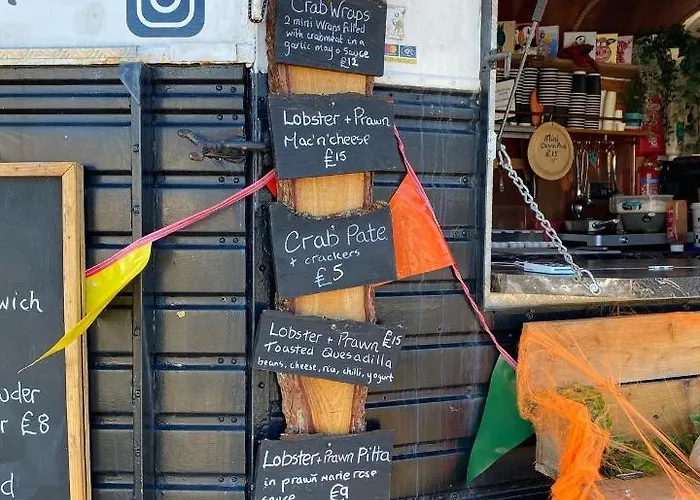 Crab Wraps
2 mini Wraps filled
with crabmeat in a
garlic mayo sauce
£12
Lobster + Prawn
Mac'n'cheese
£15
Crab Pate
+ crackers
£5
Lobster + Prawn £15
Toasted Quesadilla
beans, cheese, rice, chilli, yogurt
Lobster + Prawn Pitta
in prawn marie rose
sauce £9
wich
uder
r £8
d
Mini
£15